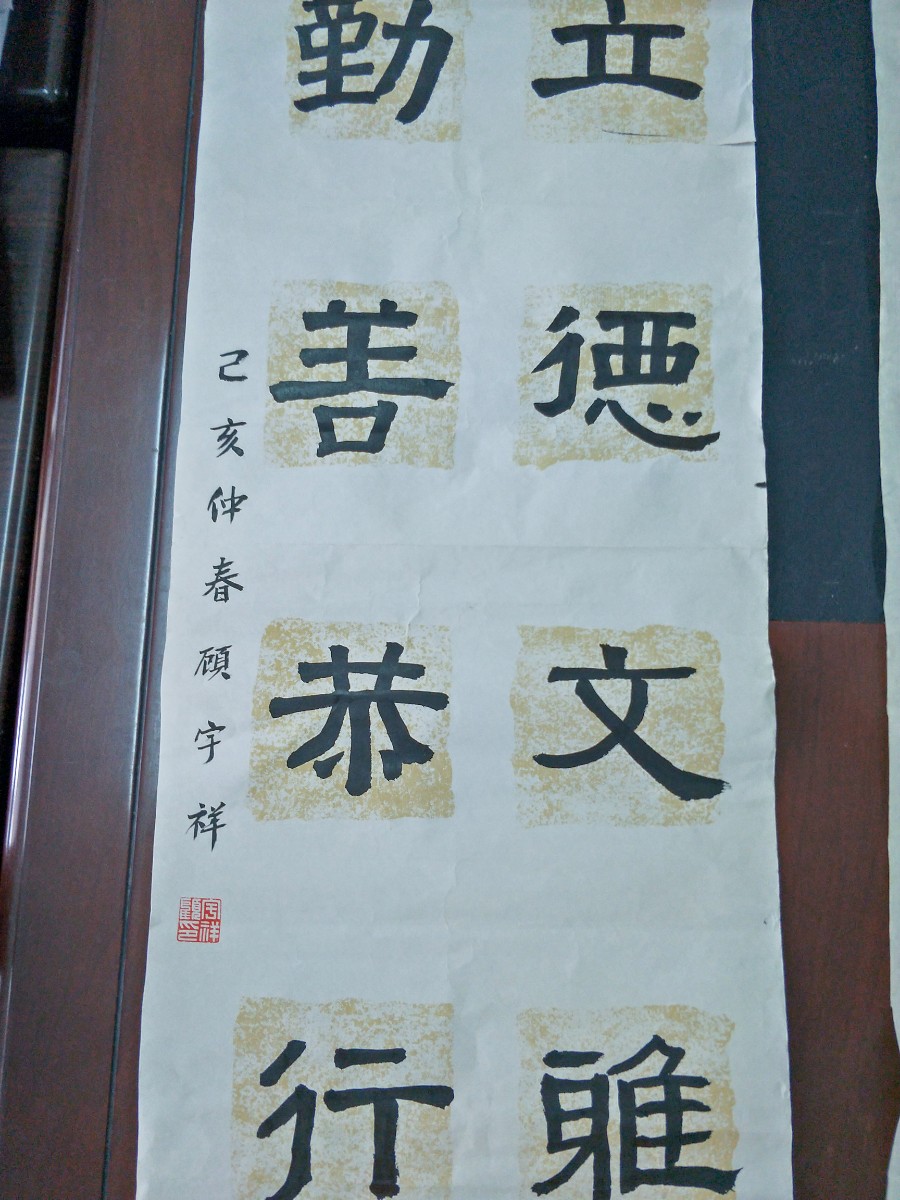 立德文雅
勤善恭行
己亥仲春顾宇祥
宇祥
顧印